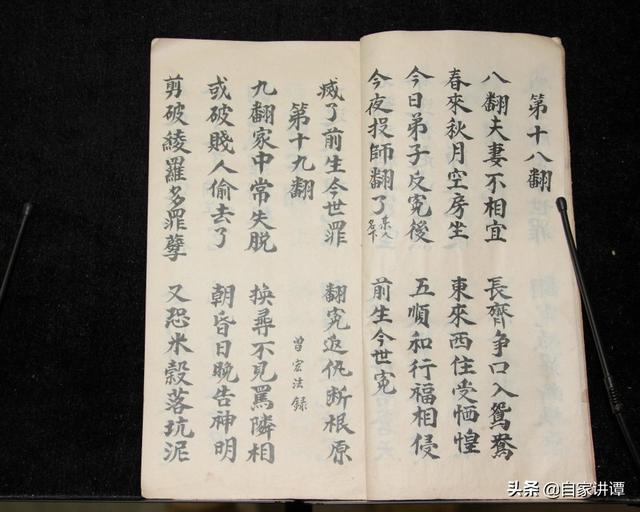 第十八翻
八翻夫妻不相宜 長齊争口入鴛鴦
春來秋月空房坐 東來西住受恓惶
今日弟子反寃後 五順和行福相侵
今夜投師翻了某人名下 前生今世寃
滅了前生今世罪 翻寃返仇断根原
第十九翻 曾宏法録
九翻家中常失脱 換尋不見罵隣相
或破賤人偷去了 朝昏日晚告神明
剪破綾羅多罪孽 又恐米穀落坑泥
头条 @自家讲谭